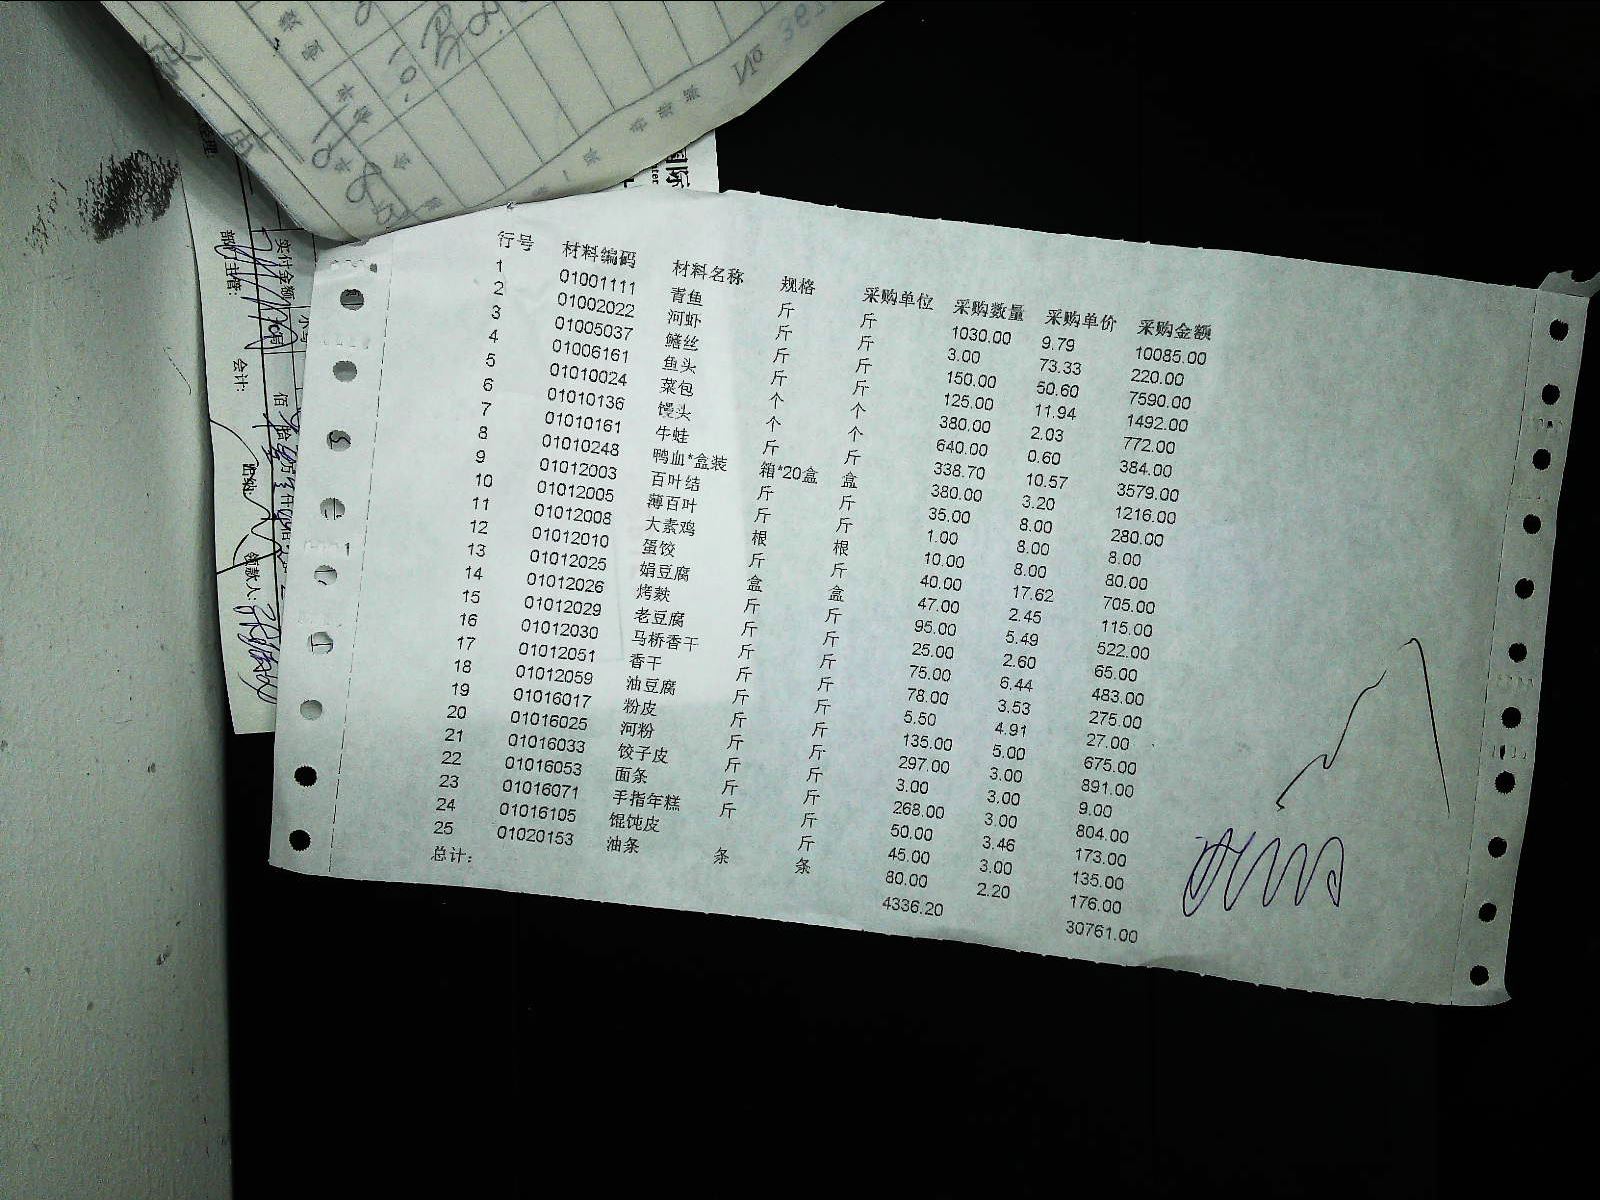 行号 材料编码 材料名称 规格 采购单位 采购数量 采购单价 采购金额
1 01001111 青鱼 斤 斤 1030.00 9.79 10085.00
2 01002022 河虾 斤 斤 3.00 73.33 220.00
3 01005037 鳝丝 斤 斤 150.00 50.60 7590.00
4 01006161 鱼头 斤 斤 125.00 11.94 1492.00
5 01010024 菜包 个 个 380.00 2.03 772.00
6 01010136 馒头 个 个 640.00 0.60 384.00
7 01010161 牛蛙 斤 斤 338.70 10.57 3579.00
8 01010248 鸭血*盒装 箱*20盒 盒 380.00 3.20 1216.00
9 01012003 百叶结 斤 斤 35.00 8.00 280.00
10 01012005 薄百叶 斤 斤 1.00 8.00 8.00
11 01012008 大素鸡 根 根 10.00 8.00 80.00
12 01012010 蛋饺 斤 斤 40.00 17.62 705.00
13 01012025 娟豆腐 盒 盒 47.00 2.45 115.00
14 01012026 烤麸 斤 斤 95.00 5.49 522.00
15 01012029 老豆腐 斤 斤 25.00 2.60 65.00
16 01012030 马桥香干 斤 斤 75.00 6.44 483.00
17 01012051 香干 斤 78.00 3.53 275.00
18 01012059 油豆腐 斤 斤 5.50 4.91 27.00
19 01016017 粉皮 斤 斤 135.00 5.00 675.00
20 01016025 河粉 斤 斤 297.00 3.00 891.00
21 01016033 饺子皮 斤 斤 3.00 3.00 9.00
22 01016053 面条 斤 斤 268.00 3.00 804.00
23 01016071 手指年糕 斤 斤 50.00 3.46 173.00
24 01016105 馄饨皮 斤 45.00 3.00 135.00
25 01020153 油条 条 条 80.00 2.20 176.00
总计: 4336.20 30761.00
部门主管:
实付金额
会计:
领款人:
国际